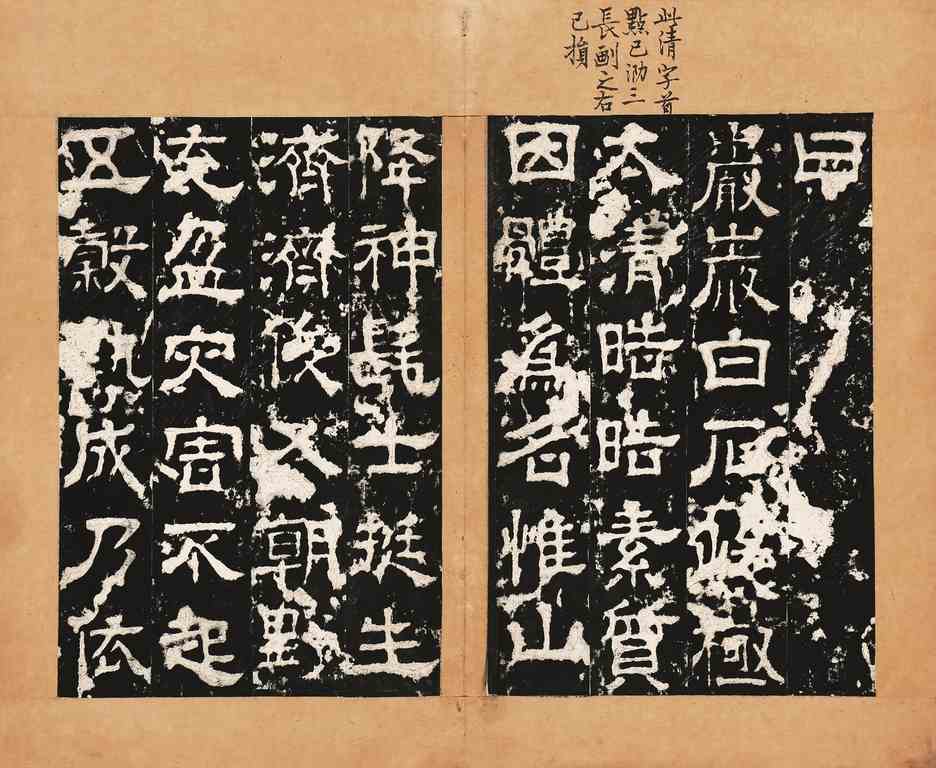 此清字首
點已泐三
長劃之右
已損
曰
巖巖白石峻極
太清晧晧素質
因體爲名惟山
降神髦士挺生
濟濟俊乂朝野
充盈灾害不起
五穀熟成乃依